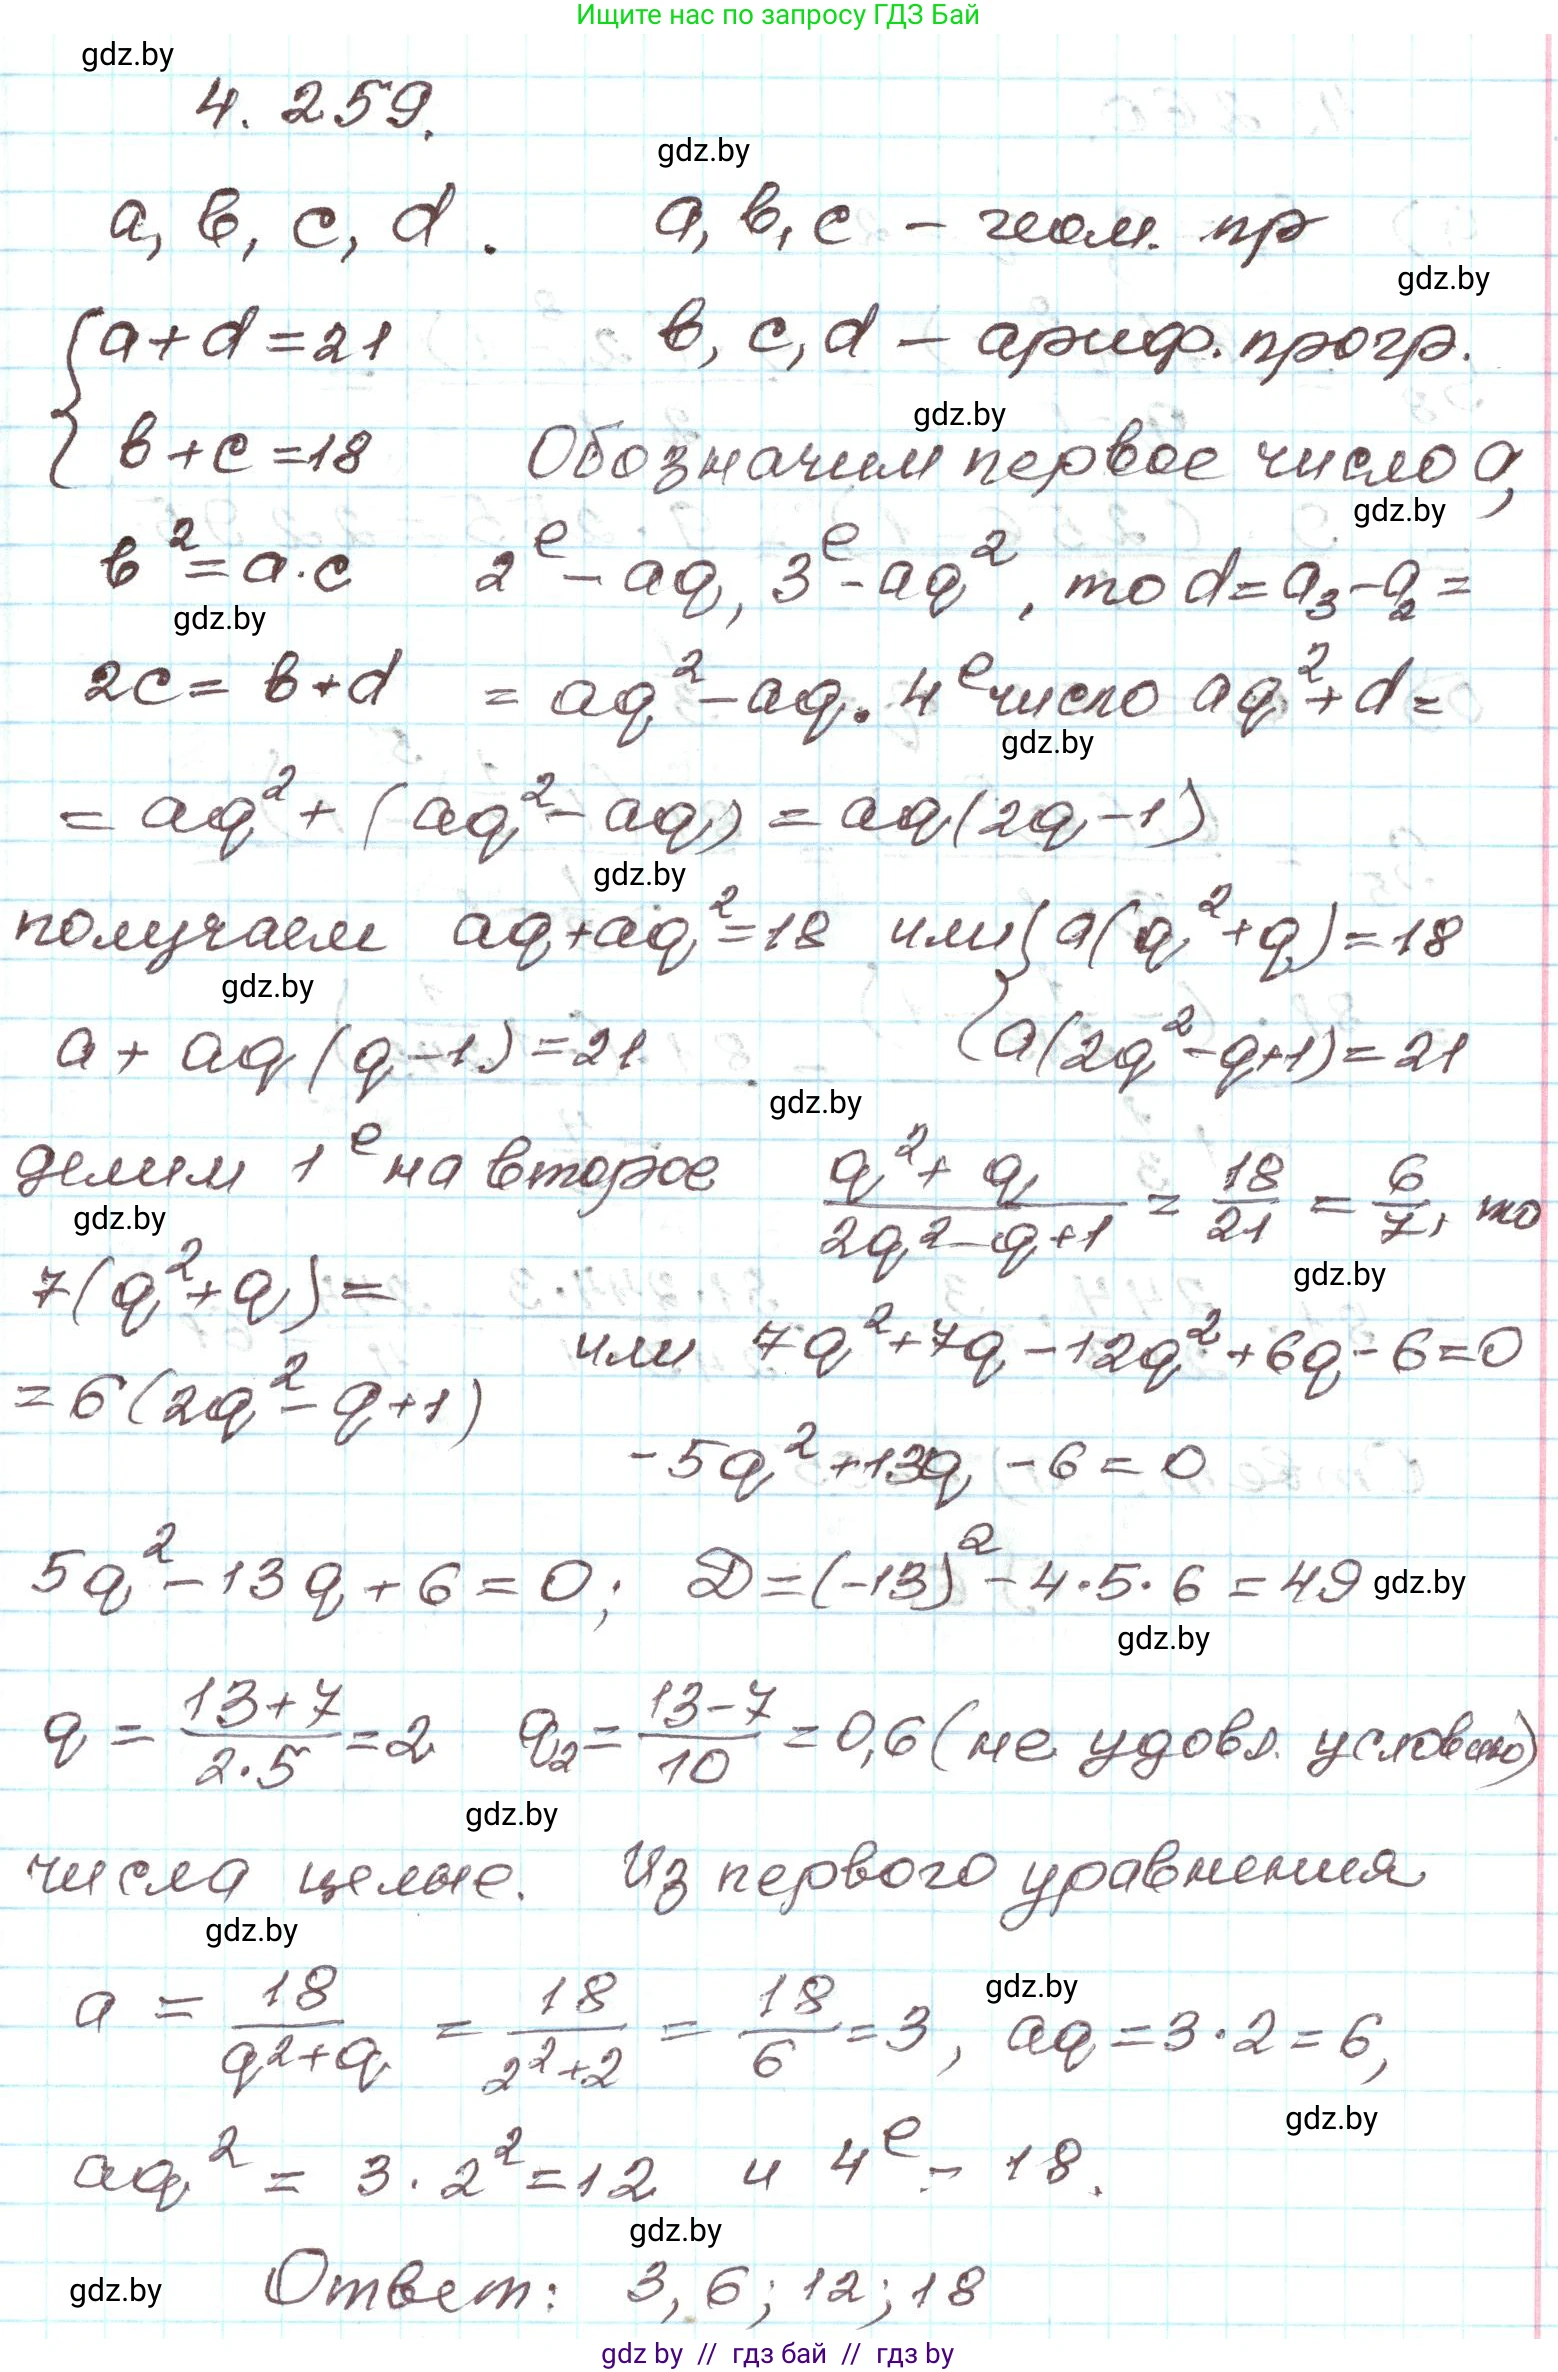 Ищите нас по запросу ГДЗ Бай
gdz.by
4.259.
gdz.by
a, b, c, d. a, b, c – геом. пр
gdz.by
{a+d=21 b, c, d – ариф. прогр.
gdz.by
b+c=18 Обозначим первое число a,
gdz.by
b²=a·c 2е – aq, 3е – aq², то d=a₃–a₂=
gdz.by
2c=b+d =aq²–aq. 4е число aq²+d=
gdz.by
=aq²+(aq²–aq)=aq(2q–1)
gdz.by
получаем aq+aq²=18 или {a(q²+q)=18
gdz.by
a+aq(q–1)=21. {a(2q²–q+1)=21
gdz.by
делим 1е на второе (q²+q)/(2q²–q+1)=18/21=6/7, то
gdz.by
gdz.by
7(q²+q)=
или 7q²+7q–12q²+6q–6=0
=6(2q²–q+1)
–5q²+13q–6=0
5q²–13q+6=0; D=(–13)²–4·5·6=49 gdz.by
gdz.by
q=(13+7)/(2·5)=2 q₂=(13–7)/10=0,6 (не удовл. условию)
gdz.by
числа целые. Из первого уравнения
gdz.by
gdz.by
a=18/(q²+q)=18/(2²+2)=18/6=3, aq=3·2=6,
gdz.by
aq²=3·2²=12 и 4е – 18.
gdz.by
gdz.by Ответ: 3, 6; 12; 18
gdz by // гдз бай // гдз by